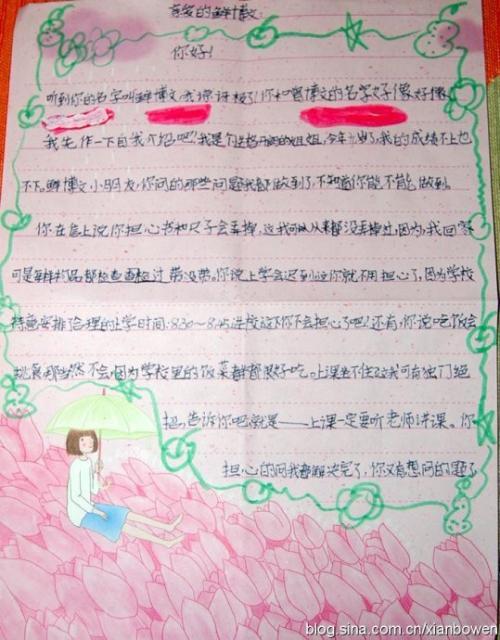 亲爱的鲜博文:
你好!
听到你的名字叫鲜博文,我惊讶极了!你和喧博文的名字好像好像
我先作一下自我介绍吧!我是 的姐姐,今年 岁了,我的成绩不上也
不下。鲜博文小朋友,你问的那些问题我都做到了,不知道你能不能做到。
你在信上说你担心书和尺子会丢掉,这我可从来都没丢掉过,因为,我回家
可是每样物品都检查查检过带没带。你说上学会迟到这你就不用担心了,因为学校
特意安排了合理的上学时间:8:30~8:45进校这下你不会担心了吧!还有,你说吃饭会
挑食那当然不会,因为学校里的饭菜都很好吃。上课坐不住这我可有独门绝
招,告诉你吧就是——上课一定要听老师讲课。你
担心的问我都解决完了,你没有想问的 了
blog.sina.com.cn/xianbowen